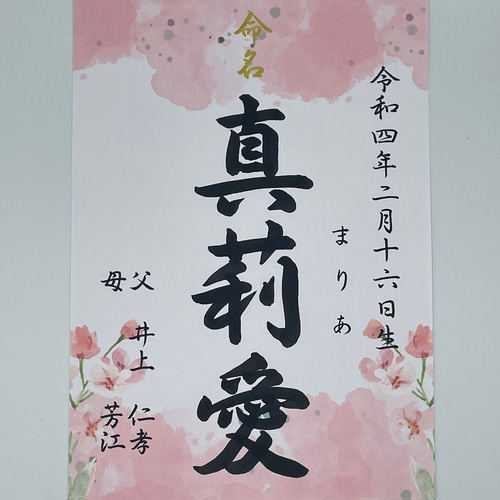 命名
令和四年二月十六日生
まりあ
真莉愛
父 井上 仁孝
母 芳江